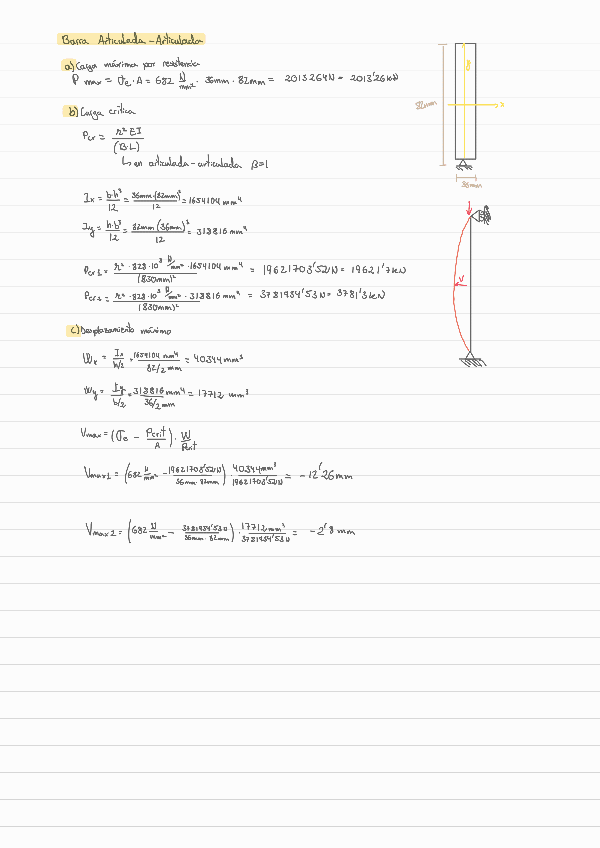 Barra Articulada - Articulada
a) Carga máxima por resistencia
P max = σe · A = 682 N/mm² · 36mm · 82mm = 2013264N = 2013'26kN
b) Carga crítica
Pcr = π² EI / (B·L)²
↳ en articulada - articulada β=1
Ix = b·h³/12 = 36mm (82mm)³/12 = 1654104 mm⁴
Iy = h·b³/12 = 82mm (36mm)³/12 = 318816 mm⁴
Pcr1 = π² · 828·10³ N/mm² · 1654104 mm⁴ / (830mm)² = 19621703'52N = 19621'7kN
Pcr2 = π² · 828·10³ N/mm² · 318816 mm⁴ / (830mm)² = 3781934'53N = 3781'9kN
c) Desplazamiento máximo
Wx = Ix/h/2 = 1654104 mm⁴/82/2 mm = 40344 mm³
Wy = Iy/b/2 = 318816 mm⁴/36/2 mm = 17712 mm³
Vmax = (σe - Pcrit/A) · W/Pcrit
Vmax1 = (682 N/mm² - 19621703'52N/36mm · 82mm) · 40344mm³/19621703'52N = -12'26 mm
Vmax2 = (682 N/mm² - 3781934'53N/36mm · 82mm) · 17712 mm³/3781934'53N = -2'8 mm
82mm
36mm
V